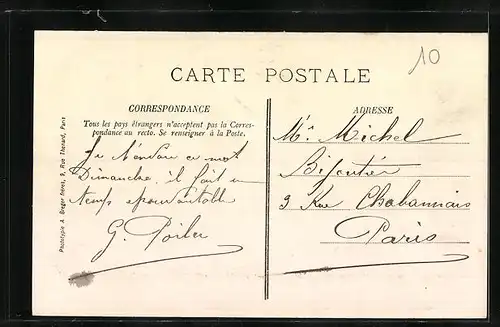 10
CARTE POSTALE
CORRESPONDANCE
Tous les pays étrangers n'acceptent pas la Corres-
pondance au recto. Se renseigner à la Poste.
Je ce mot
Dimanche, il fait un
temps épouvantable
G.
Phototypie A. Breger frères, 9, Rue Thénard, Paris
ADRESSE
Mr. Michel
Bijoutier
3 Rue Chabannais
Paris